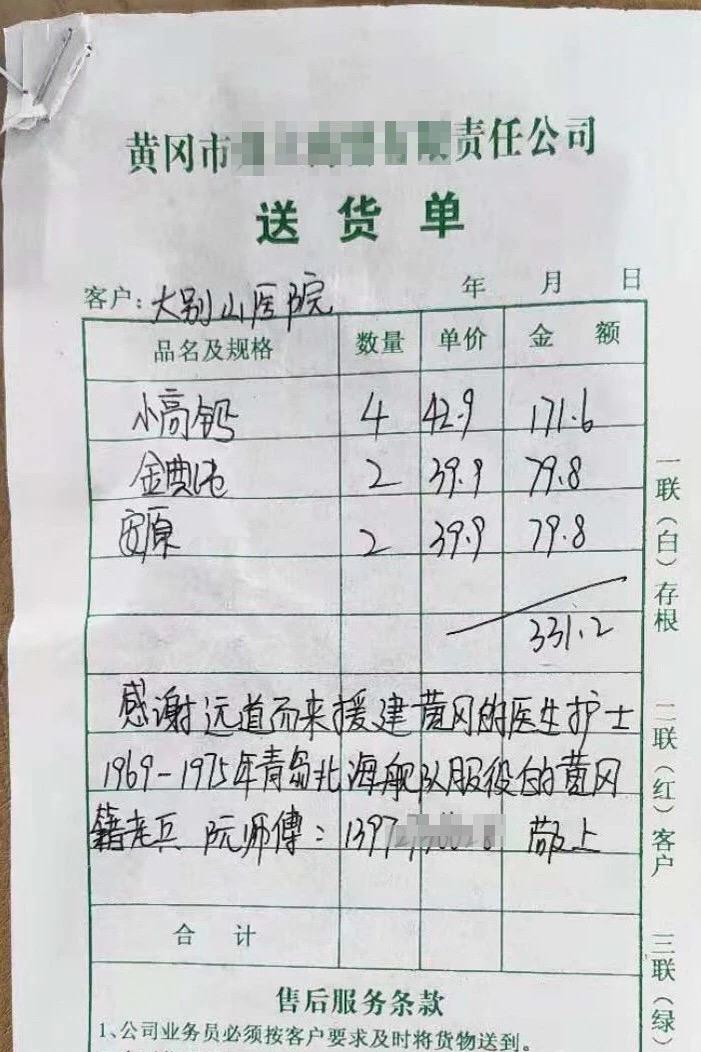 黄冈市 责任公司
送货单
客户: 大别山医院 年 月 日
品名及规格 数量 单价 金 额
小高钙 4 42.9 171.6
金典 2 39.9 79.8
安原 2 39.9 79.8
331.2
感谢远道而来援建黄冈的医生护士
1969-1975年青岛北海舰队服役的黄冈
籍老兵 阮师傅: 1397 敬上
合 计
售后服务条款
1、公司业务员必须按客户要求及时将货物送到。
一联(白)存根
二联(红)客户
三联(绿)